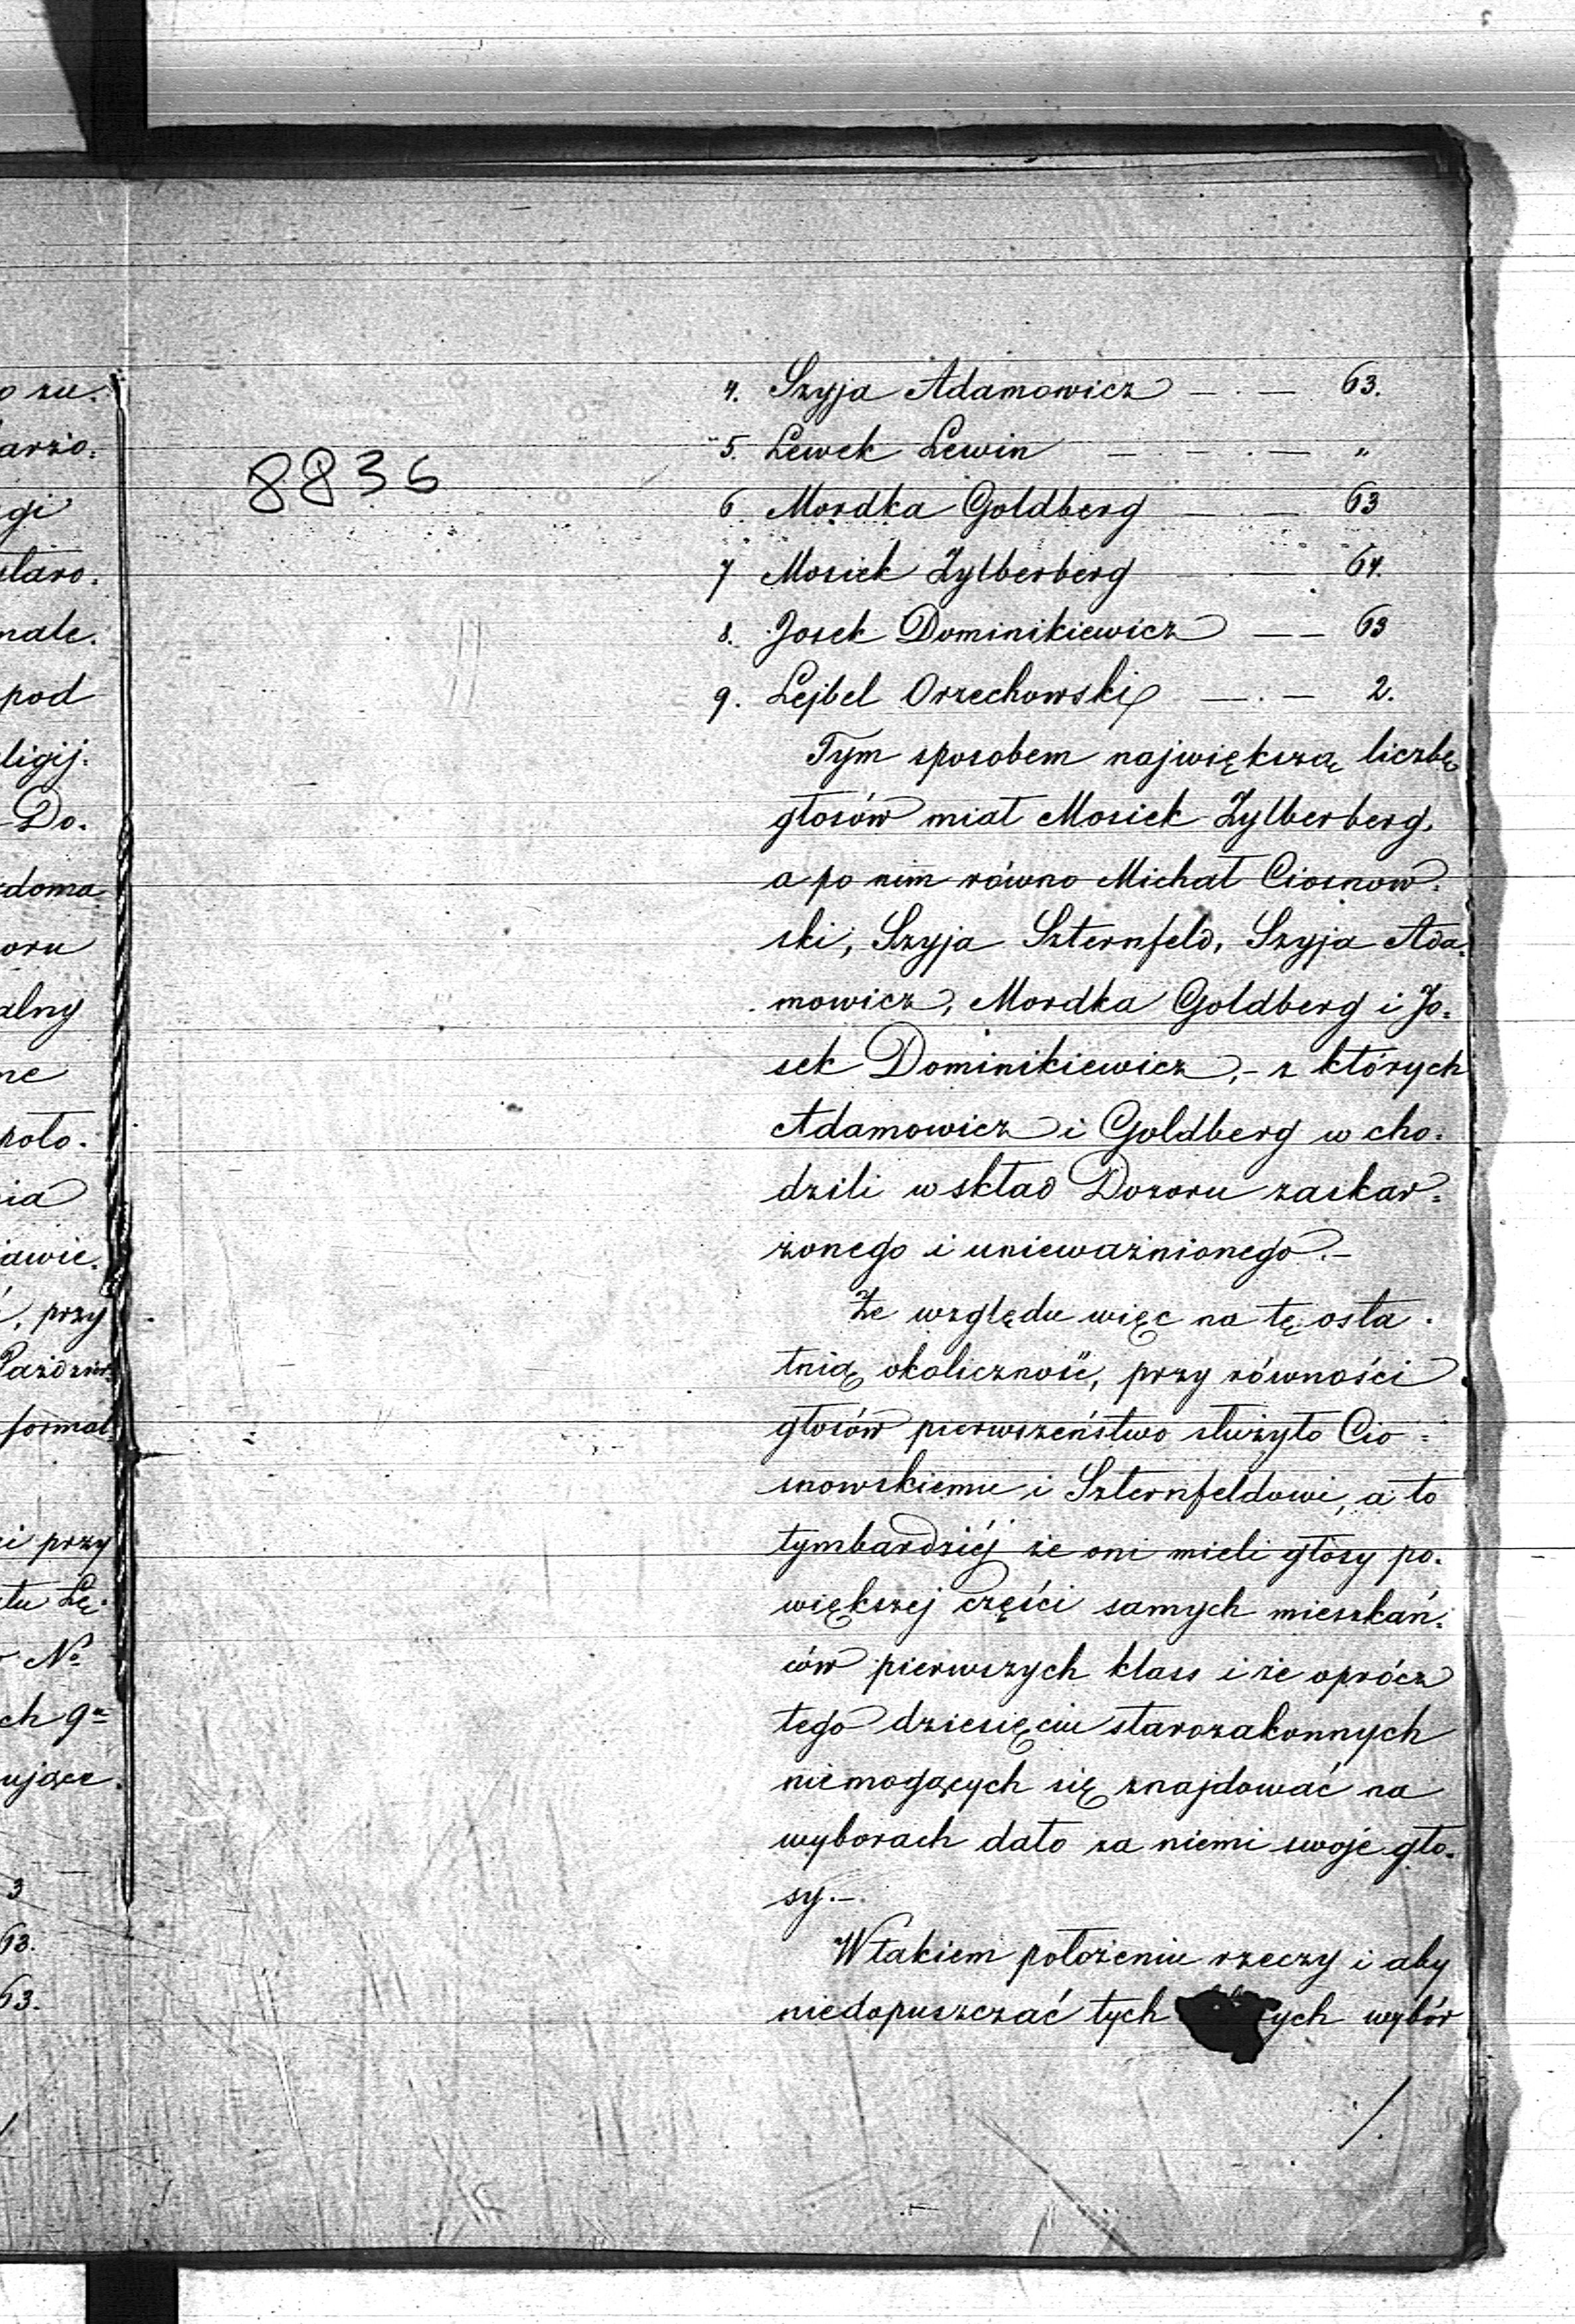 o zu.
arzo.
gi
staro.
nale.
pod
ligij.
Do.
zdoma
oru
alny
ne
poło.
nia
awie.
, przy
Paździer.
formal=
i przy
tu Łę.
No
ch 9
ujące.
3
63.
63.
8836
4. Szyja Adamowicz — . — 63.
5. Lewek Lewin — - . — „
6 Mordka Goldberg — . — 63
7 Mosiek Zylberberg — . — 64.
8. Josek Dominikiewicz — — 63
9. Lejbel Orzechowski — . — 2.
Tym sposobem największą liczbę
głosów miał Mosiek Zylberberg,
a po nim równo Michał Ciosnow=
ski, Szyja Szternfeld, Szyja Ada=
mowicz, Mordka Goldberg i Jo=
sek Dominikiewicz, - z których
Adamowicz i Goldberg w cho=
dzili w skład Dozoru zaskar=
żonego i unieważnionego. -
Ze względu więc na tę osta .
tnią okoliczność, przy równości
głosów pierwszeństwo służyło Cio =
snowskiemu i Szternfeldowi, a to
tymbardziéj że oni mieli głosy po.
większej części samych mieszkań.
ców pierwszych klass i że oprócz
tego dziesięciu starozakonnych
niemogących się znajdować na
wyborach dało za niemi swoje gło.
sy. -
W takiem położeniu rzeczy i aby
niedopuszczać tych ych wybór
/.